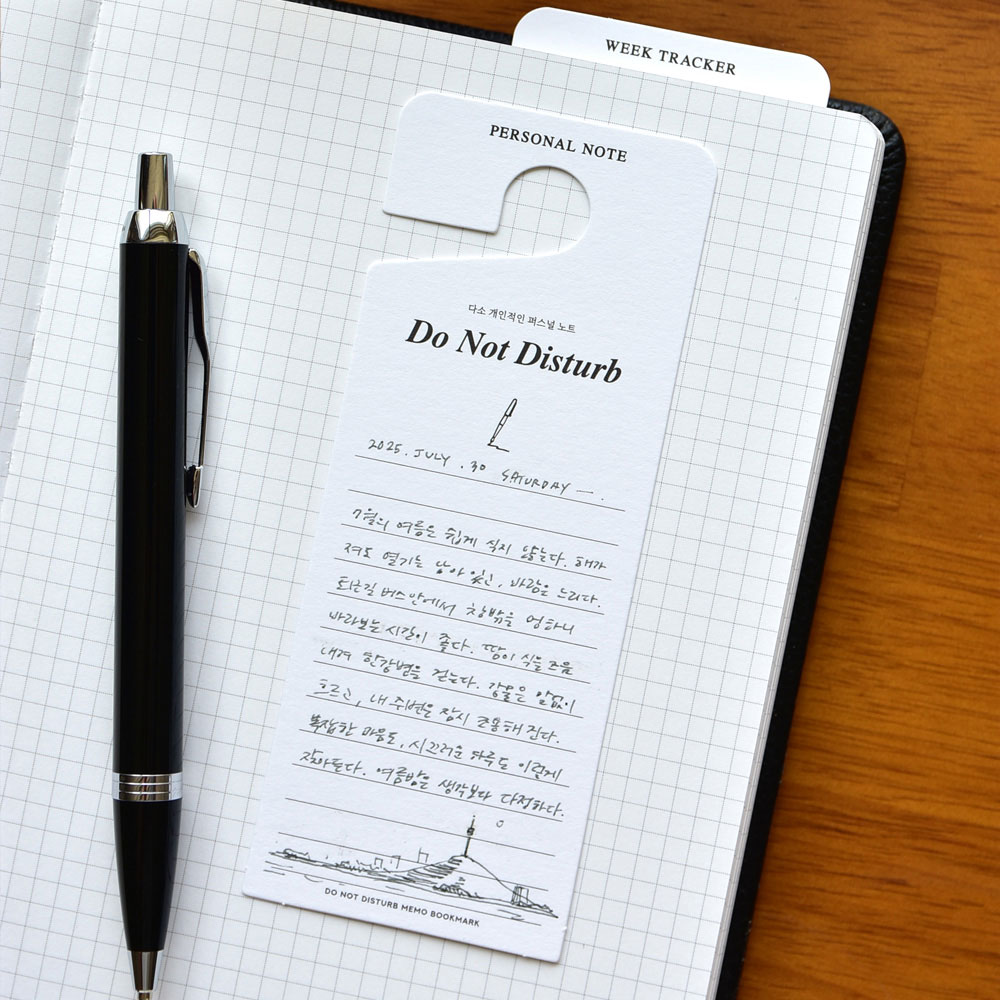 WEEK TRACKER
PERSONAL NOTE
다소 개인적인 퍼스널 노트
Do Not Disturb
2025. JULY. 30 SATURDAY —.
7월의 여름은 쉽게 식지 않는다. 해가
져도 열기는 남아 있고, 바람은 느리다.
퇴근길 버스 안에서 창밖을 멍하니
바라보는 시간이 좋다. 땀이 식을 즈음
내려 한강변을 걷는다. 강물은 말없이
흐르고, 내 주변은 잠시 조용해진다.
복잡한 마음도, 시끄러운 하루도 이렇게
잦아든다. 여름밤은 생각보다 다정하다.
DO NOT DISTURB MEMO BOOKMARK